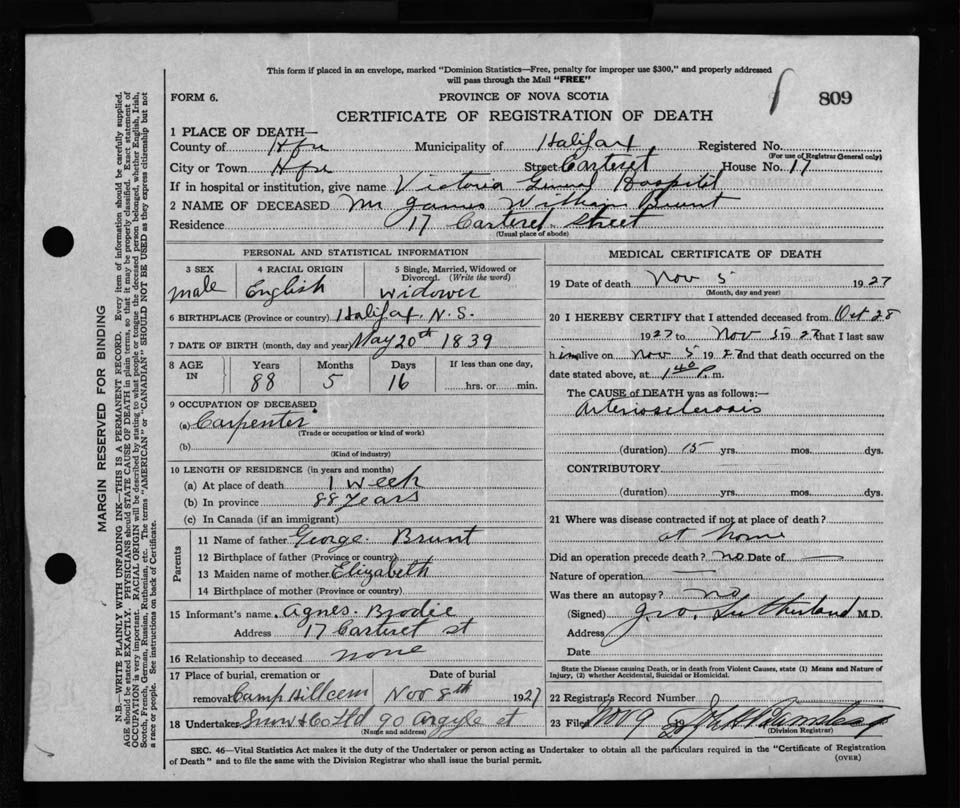 This form if placed in an envelope, marked "Dominion Statistics—Free, penalty for improper use $300," and properly addressed
will pass through the Mail "FREE"
FORM 6.
PROVINCE OF NOVA SCOTIA
809
CERTIFICATE OF REGISTRATION OF DEATH
1 PLACE OF DEATH—
County of Hfx Municipality of Halifax Registered No.
(For use of Registrar General only)
City or Town Hfx Street Carteret House No. 17
If in hospital or institution, give name Victoria General Hospital
2 NAME OF DECEASED Mr James William Brunt
Residence 17 Carteret Street
(Usual place of abode)
PERSONAL AND STATISTICAL INFORMATION
3 SEX 4 RACIAL ORIGIN 5 Single, Married, Widowed or Divorced. (Write the word)
male English Widower
6 BIRTHPLACE (Province or country) Halifax, N.S.
7 DATE OF BIRTH (month, day and year) May 20th 1839
8 AGE IN Years Months Days If less than one day,
88 5 16 hrs. or min.
9 OCCUPATION OF DECEASED
(a) Carpenter
(Trade or occupation or kind of work)
(b)
(Kind of industry)
10 LENGTH OF RESIDENCE (in years and months)
(a) At place of death 1 week
(b) In province 88 years
(c) In Canada (if an immigrant)
Parents
11 Name of father George Brunt
12 Birthplace of father (Province or country)
13 Maiden name of mother Elizabeth
14 Birthplace of mother (Province or country)
15 Informant's name Agnes Brodie
Address 17 Carteret st
16 Relationship to deceased none
17 Place of burial, cremation or removal Date of burial
Camp Hill cem Nov 8th 1927
18 Undertaker Snow & Co Ltd 90 Argyle st
(Name and address)
MEDICAL CERTIFICATE OF DEATH
19 Date of death Nov 5 1927
(Month, day and year)
20 I HEREBY CERTIFY that I attended deceased from Oct 28
1927 to Nov 5 1927 that I last saw
him alive on Nov 5 1927 and that death occurred on the
date stated above, at 1 40 P. m.
The CAUSE OF DEATH was as follows:—
Arteriosclerosis
(duration) 15 yrs. mos. dys.
CONTRIBUTORY
(duration) yrs. mos. dys.
21 Where was disease contracted if not at place of death?
at home
Did an operation precede death? no Date of —
Nature of operation —
Was there an autopsy? no
(Signed) Sutherland M.D.
Address
Date
State the Disease causing Death, or in death from Violent Causes, state (1) Means and Nature of
Injury, (2) whether Accidental, Suicidal or Homicidal.
22 Registrar's Record Number
23 Filed Nov 9
(Division Registrar)
SEC. 46—Vital Statistics Act makes it the duty of the Undertaker or person acting as Undertaker to obtain all the particulars required in the "Certificate of Registration
of Death" and to file the same with the Division Registrar who shall issue the burial permit.
(OVER)
MARGIN RESERVED FOR BINDING
N.B.—WRITE PLAINLY, WITH UNFADING INK—THIS IS A PERMANENT RECORD. Every item of information should be carefully supplied.
AGE should be stated EXACTLY. PHYSICIANS should STATE CAUSE OF DEATH in plain terms, so that it may be properly classified. Exact statement of
OCCUPATION is very important. RACIAL ORIGIN will be described by stating to what people or tongue the deceased person belonged, whether English, Irish,
Scotch, French, German, Russian, Ruthenian, etc. The terms "AMERICAN" or "CANADIAN" SHOULD NOT BE USED as they express citizenship but not
a race or people. See instructions on back of Certificate.